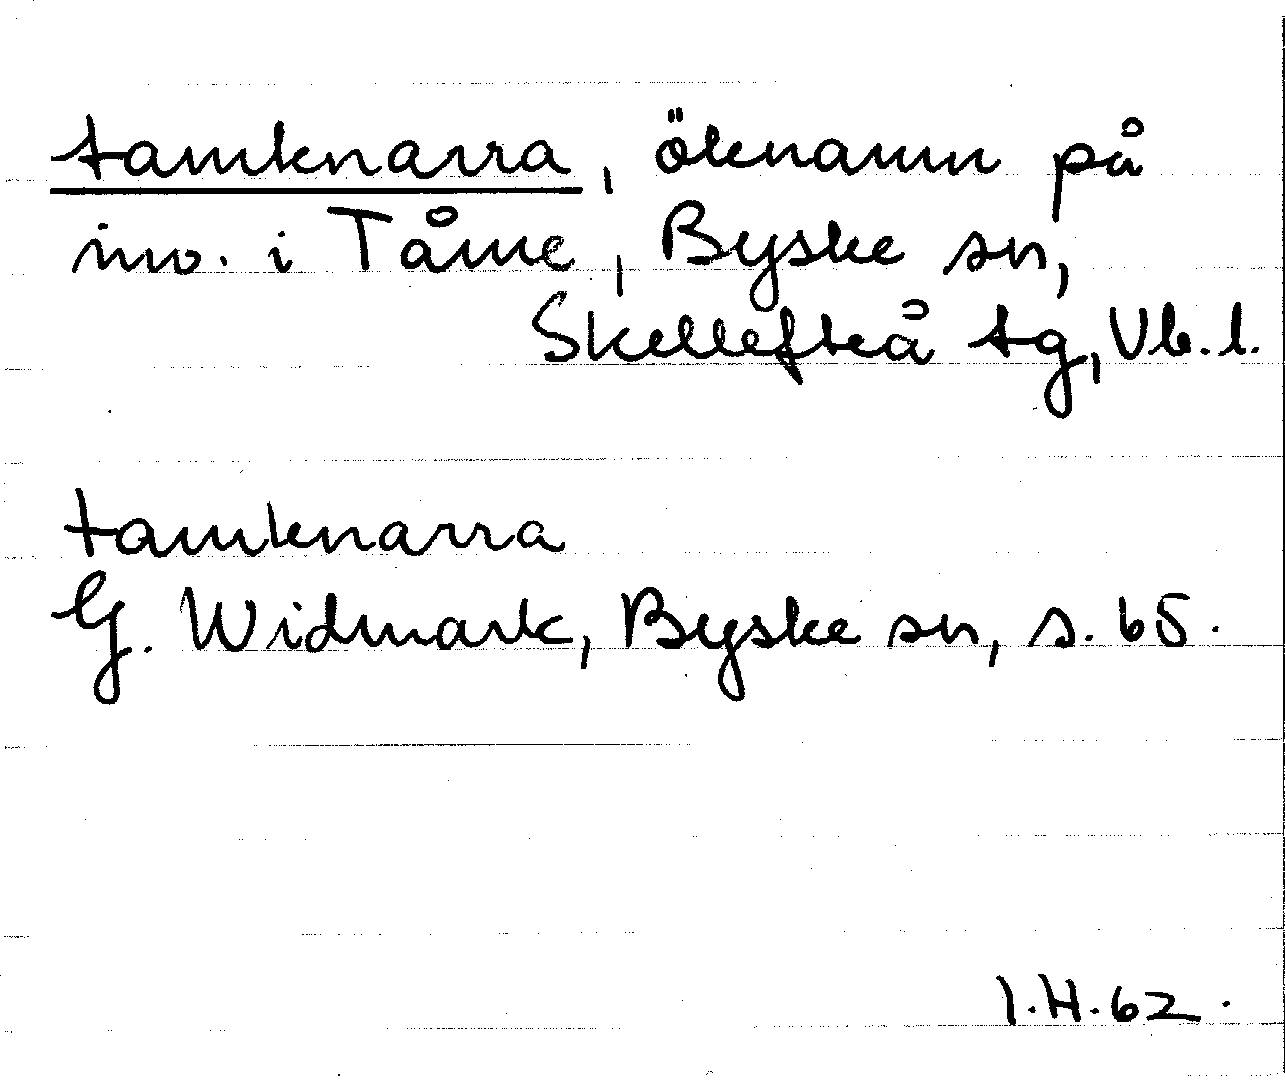 tamknarra, öknamn på
inv. i Tåme, Byske sn,
Skellefteå tg, Vb.l.
tamknarra
G. Widmark, Byske sn, s. 65.
I.H.62.